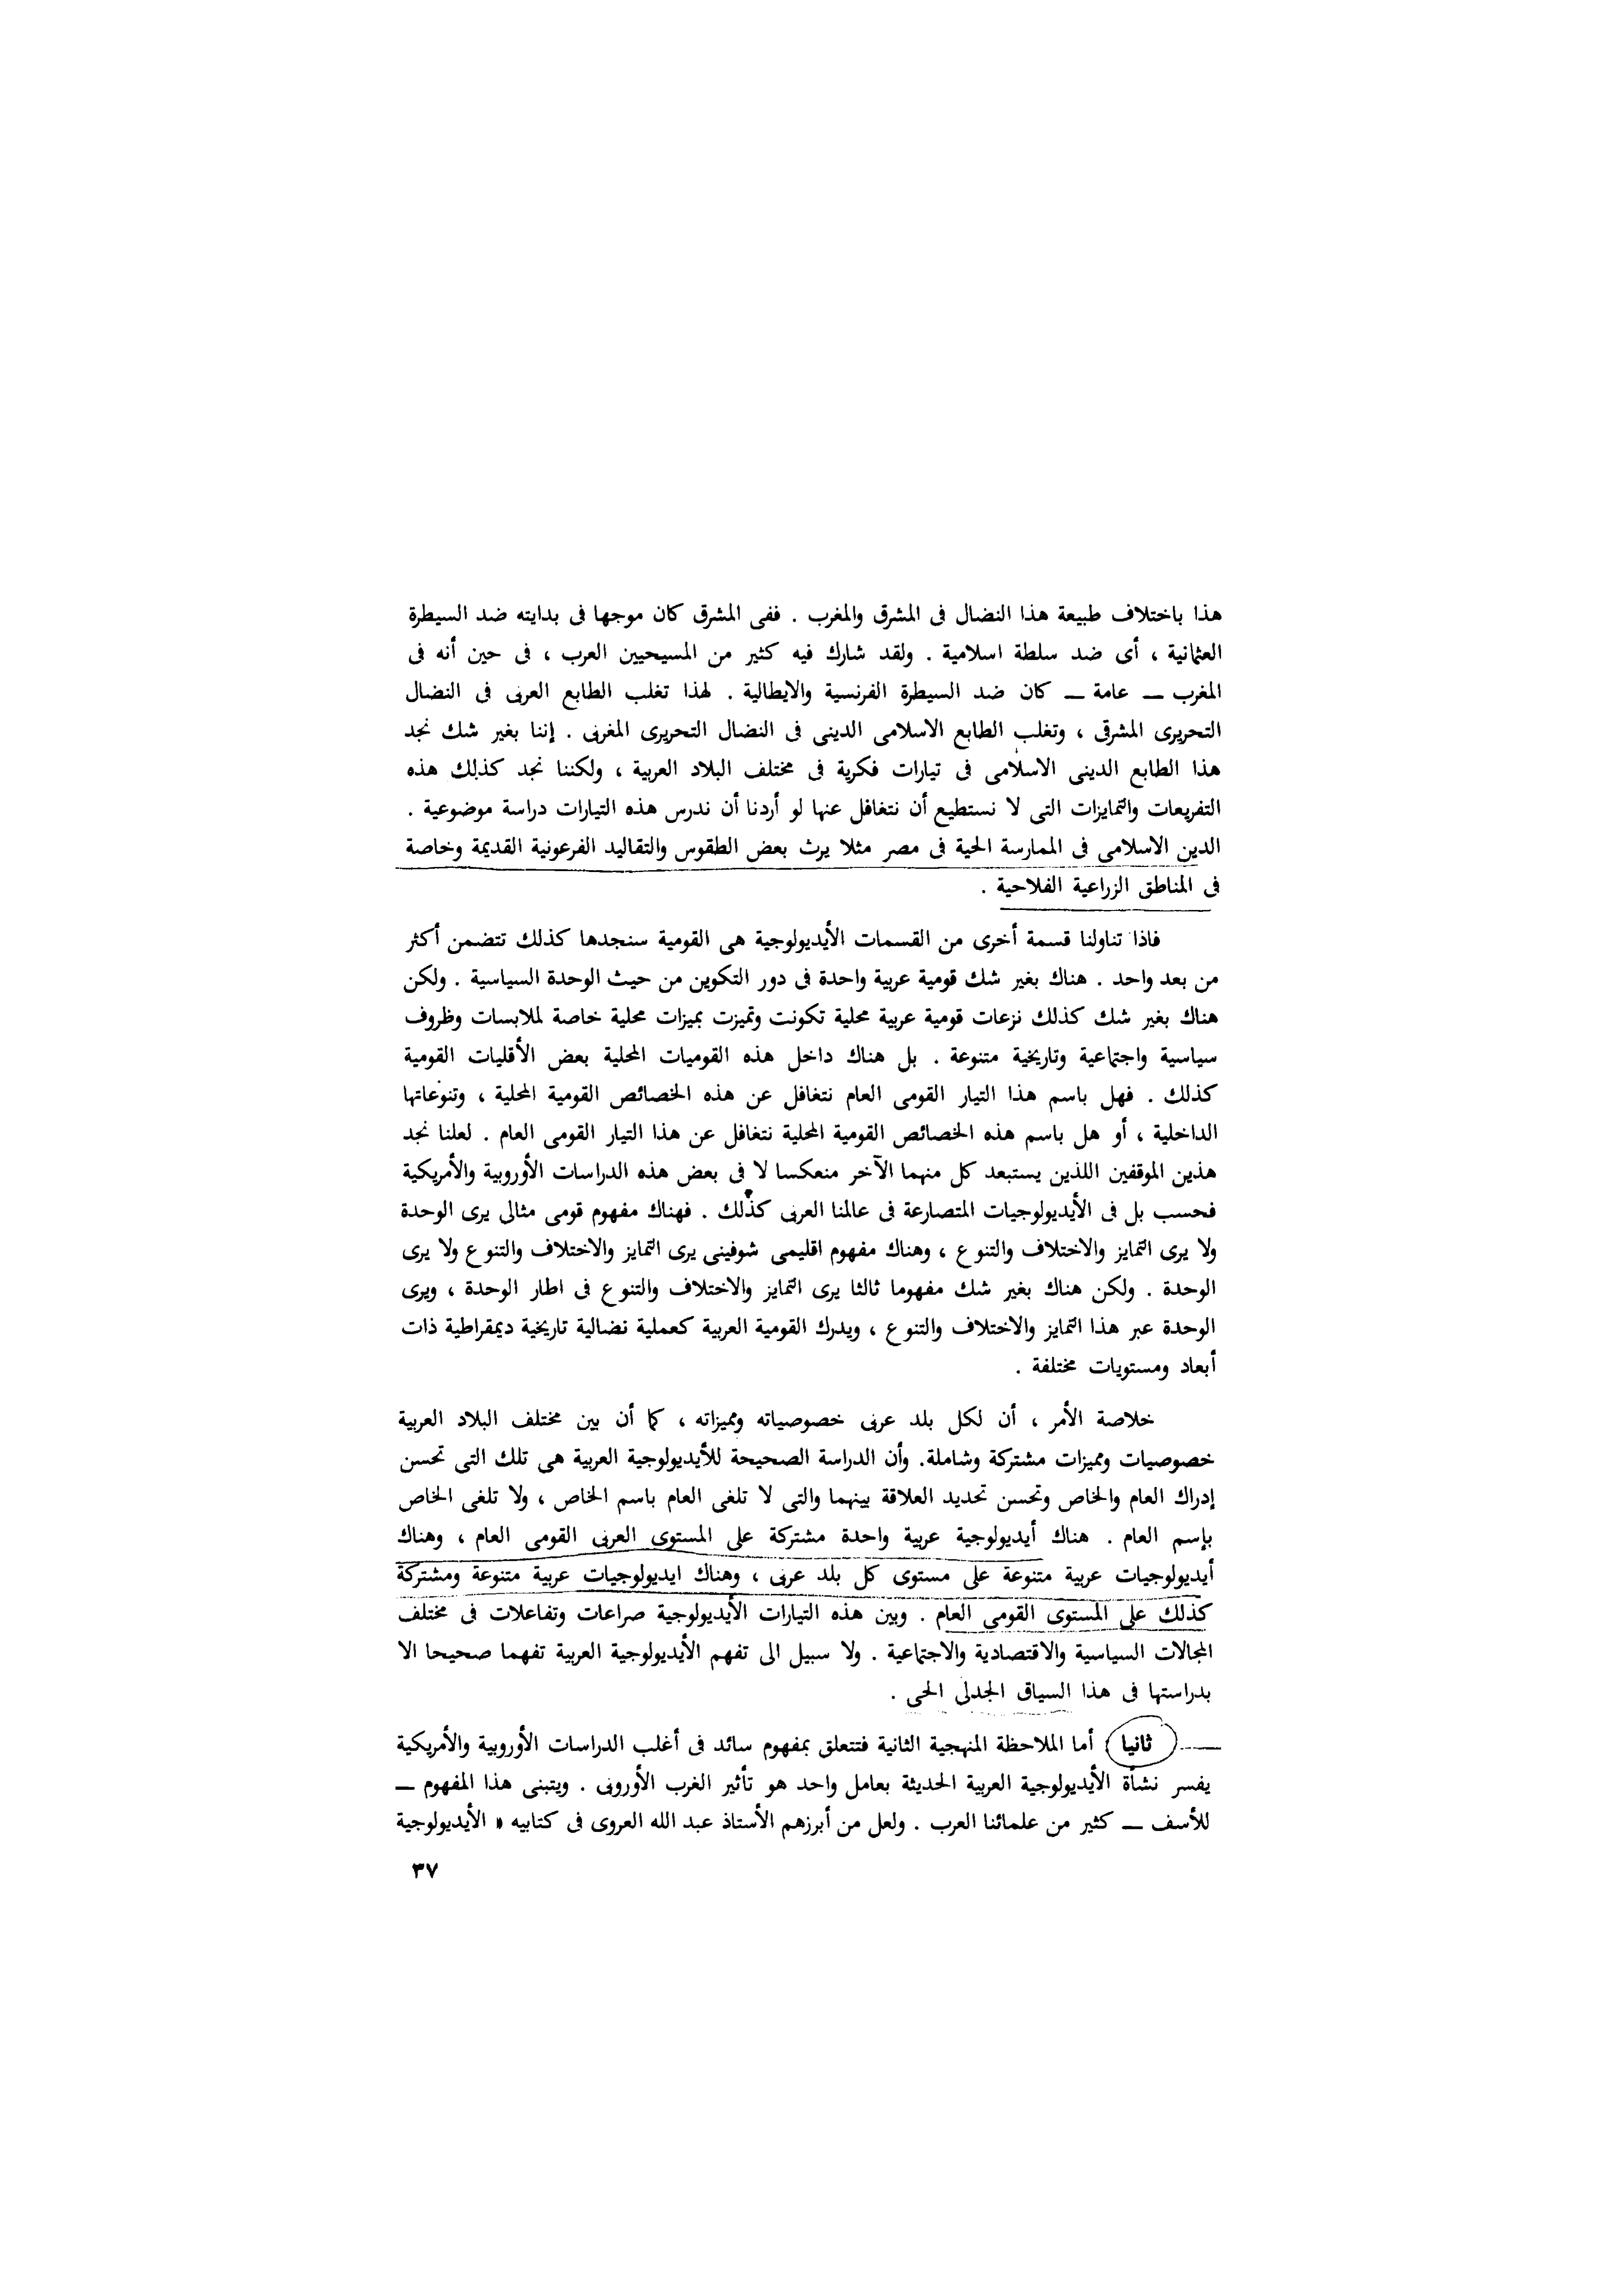 هذا باختلاف طبيعة هذا النضال فى المشرق والمغرب . ففى المشرق كان موجها فى بدايته ضد السيطرة
العثمانية ، أى ضد سلطة اسلامية . ولقد شارك فيه كثير من المسيحيين العرب ، فى حين أنه فى
المغرب ــ عامة ــ كان ضد السيطرة الفرنسية والايطالية . لهذا تغلب الطابع العربى فى النضال
التحريرى المشرقى ، وتغلب الطابع الاسلامى الدينى فى النضال التحريرى المغربى . إننا بغير شك نجد
هذا الطابع الدينى الاسلامى فى تيارات فكرية فى مختلف البلاد العربية ، ولكننا نجد كذلك هذه
التفريعات والتمايزات التى لا نستطيع أن نتغافل عنها لو أردنا أن ندرس هذه التيارات دراسة موضوعية .
الدين الاسلامى فى الممارسة الحية فى مصر مثلا يرث بعض الطقوس والتقاليد الفرعونية القديمة وخاصة
فى المناطق الزراعية الفلاحية .
فاذا تناولنا قسمة أخرى من القسمات الأيديولوجية هى القومية سنجدها كذلك تتضمن أكثر
من بعد واحد . هناك بغير شك قومية عربية واحدة فى دور التكوين من حيث الوحدة السياسية . ولكن
هناك بغير شك كذلك نزعات قومية عربية محلية تكونت وتميزت بميزات محلية خاصة لملابسات وظروف
سياسية واجتماعية وتاريخية متنوعة . بل هناك داخل هذه القوميات المحلية بعض الأقليات القومية
كذلك . فهل باسم هذا التيار القومى العام نتغافل عن هذه الخصائص القومية المحلية ، وتنوعاتها
الداخلية ، أو هل باسم هذه الخصائص القومية المحلية نتغافل عن هذا التيار القومى العام . لعلنا نجد
هذين الموقفين اللذين يستبعد كل منهما الآخر منعكسا لا فى بعض هذه الدراسات الأوروبية والأمريكية
فحسب بل فى الأيديولوجيات المتصارعة فى عالمنا العربى كذلك . فهناك مفهوم قومى مثالى يرى الوحدة
ولا يرى التمايز والاختلاف والتنوع ، وهناك مفهوم اقليمى شوفينى يرى التمايز والاختلاف والتنوع ولا يرى
الوحدة . ولكن هناك بغير شك مفهوما ثالثا يرى التمايز والاختلاف والتنوع فى اطار الوحدة ، ويرى
الوحدة عبر هذا التمايز والاختلاف والتنوع ، ويدرك القومية العربية كعملية نضالية تاريخية ديمقراطية ذات
أبعاد ومستويات مختلفة .
خلاصة الأمر ، أن لكل بلد عربى خصوصياته ومميزاته ، كما أن بين مختلف البلاد العربية
خصوصيات ومميزات مشتركة وشاملة. وأن الدراسة الصحيحة للأيديولوجية العربية هى تلك التى تحسن
إدراك العام والخاص وتحسن تحديد العلاقة بينهما والتى لا تلغى العام باسم الخاص ، ولا تلغى الخاص
بإسم العام . هناك أيديولوجية عربية واحدة مشتركة على المستوى العربى القومى العام ، وهناك
أيديولوجيات عربية متنوعة على مستوى كل بلد عربى ، وهناك ايديولوجيات عربية متنوعة ومشتركة
كذلك على المستوى القومى العام . وبين هذه التيارات الأيديولوجية صراعات وتفاعلات فى مختلف
المجالات السياسية والاقتصادية والاجتماعية . ولا سبيل الى تفهم الأيديولوجية العربية تفهما صحيحا الا
بدراستها فى هذا السياق الجدلى الحى .
ثانيا : أما الملاحظة المنهجية الثانية فتتعلق بمفهوم سائد فى أغلب الدراسات الأوروبية والأمريكية
يفسر نشأة الأيديولوجية العربية الحديثة بعامل واحد هو تأثير الغرب الأوروبى . ويتبنى هذا المفهوم ــ
للأسف ــ كثير من علمائنا العرب . ولعل من أبرزهم الأستاذ عبد الله العروى فى كتابيه « الأيديولوجية
٣٧